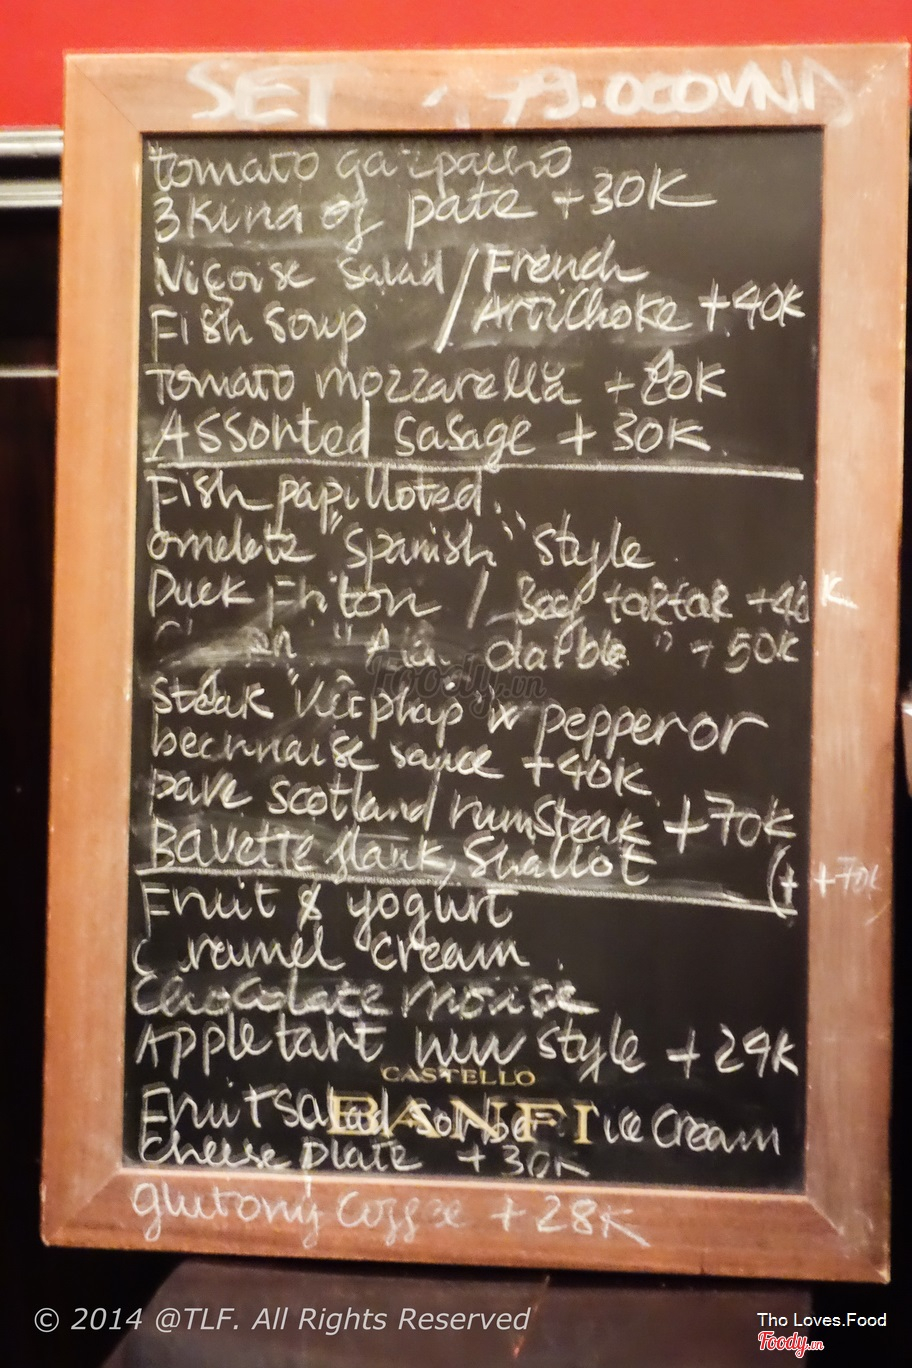 SET 79.000VND
tomato gazpacho
3 kind of pate +30K
Niçoise Salad / French
Fish Soup / Artichoke +40K
tomato mozzarella +20K
Assorted Sasage + 30K
Fish papilloted.
omelete "Spanish" style
Duck Friton / Beef tartar +40K
50K
Steak "Việt pháp" pepper or
bearnaise sauce +40K
pave scotland rumsteak +70K
Bavette flank, Shallot +70K
Fruit & yogurt
Caramel cream
Chocolate Mouse
Apple tart new style +29K
CASTELLO
BANFI
Fruit salad sorbet ice cream
Cheese plate +30K
glutony Coffee +28K
Foody.vn
© 2014 @TLF. All Rights Reserved
Tho Loves.Food
Foody.vn